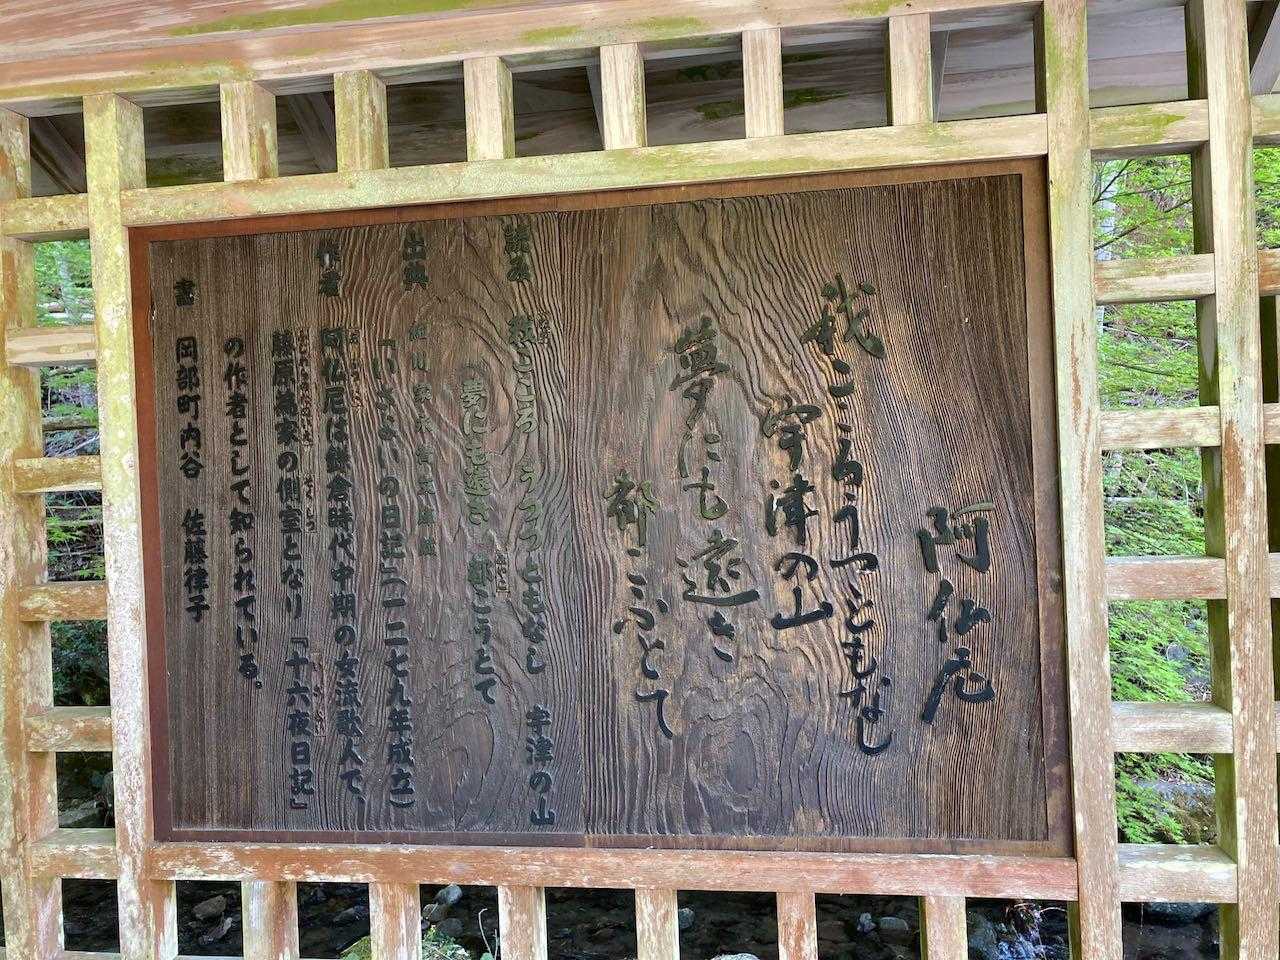 阿仏尼
我こゝろうつゝともなし
宇津の山
夢にも遠き
都こふとて
読み
我こころ うつつともなし 宇津の山
夢にも遠き 都こうとて
出典
「いさよいの日記」(一二七九年成立)
作者
阿仏尼は鎌倉時代中期の女流歌人で、
藤原為家の側室となり『十六夜日記』
の作者として知られている。
書 岡部町内谷 佐藤律子